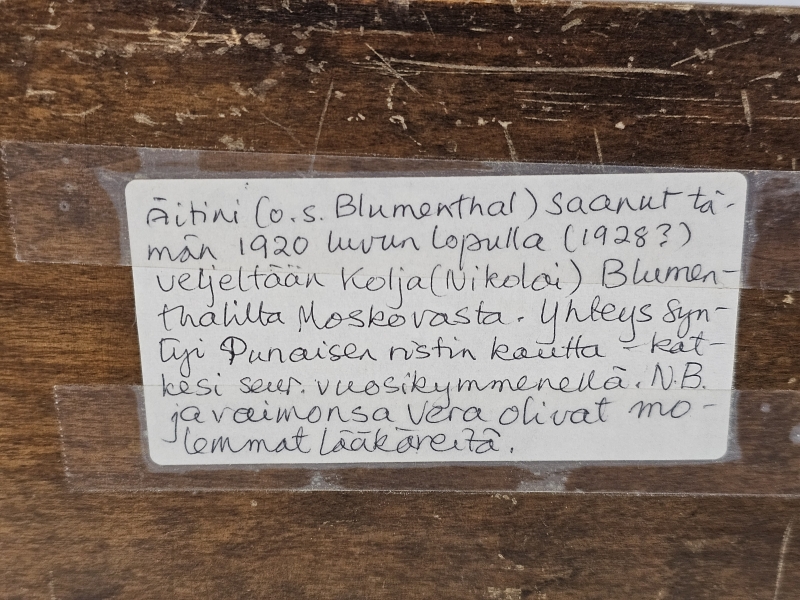 Äitini (o.s. Blumenthal) saanut tä-
män 1920 luvun lopulla (1928?)
veljeltään Kolja (Nikolai) Blumen-
thalilta Moskovasta. Yhteys syn-
tyi Punaisen ristin kautta - kat-
kesi seur. vuosikymmenellä. N.B.
ja vaimonsa Vera olivat mo-
lemmat lääkäreitä.